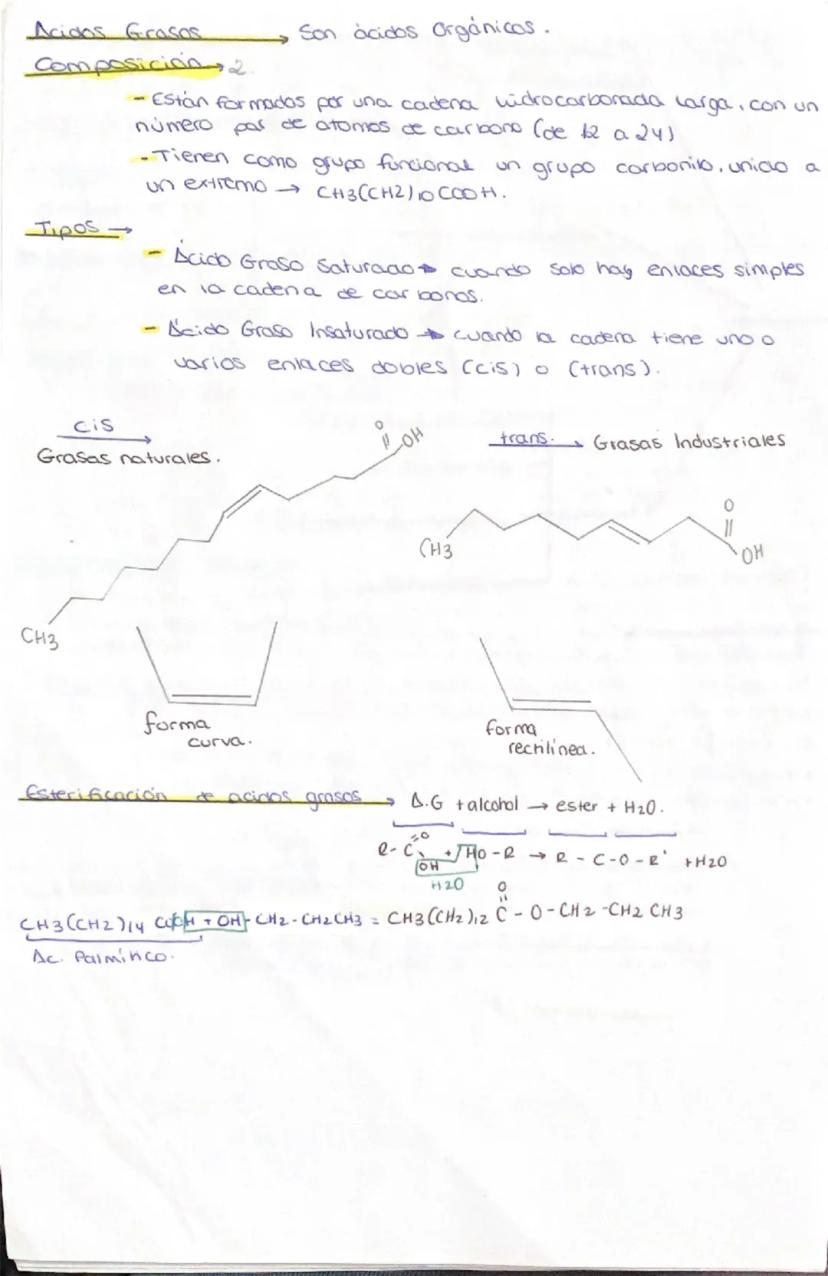 Acidos Grasos → Son ácidos Orgánicos.
Composición → 2.
- Están formados por una cadena hidrocarbonada larga, con un
número par de atomos de carbono (de 12 a 24)
- Tienen como grupo funcional un grupo carbonilo, unido a
un extremo → CH3(CH2)10COOH.
Tipos →
- Ácido Graso Saturado → cuando solo hay enlaces simples
en la cadena de carbonos.
- Ácido Graso Insaturado → cuando la cadena tiene uno o
varios enlaces dobles (cis) o (trans).
cis →
Grasas naturales.
O
OH
CH3
trans. → Grasas Industriales
CH3
O
OH
forma
curva.
forma
rectilínea.
Esterificación de ácidos grasos → A.G + alcohol → ester + H2O.
R-C=O OH + HO-R → R-C-O-R' + H2O
H2O
CH3(CH2)14 COOH + OH-CH2-CH2CH3 = CH3(CH2)12 C(=O)-O-CH2-CH2 CH3
Ac. Palmítico.